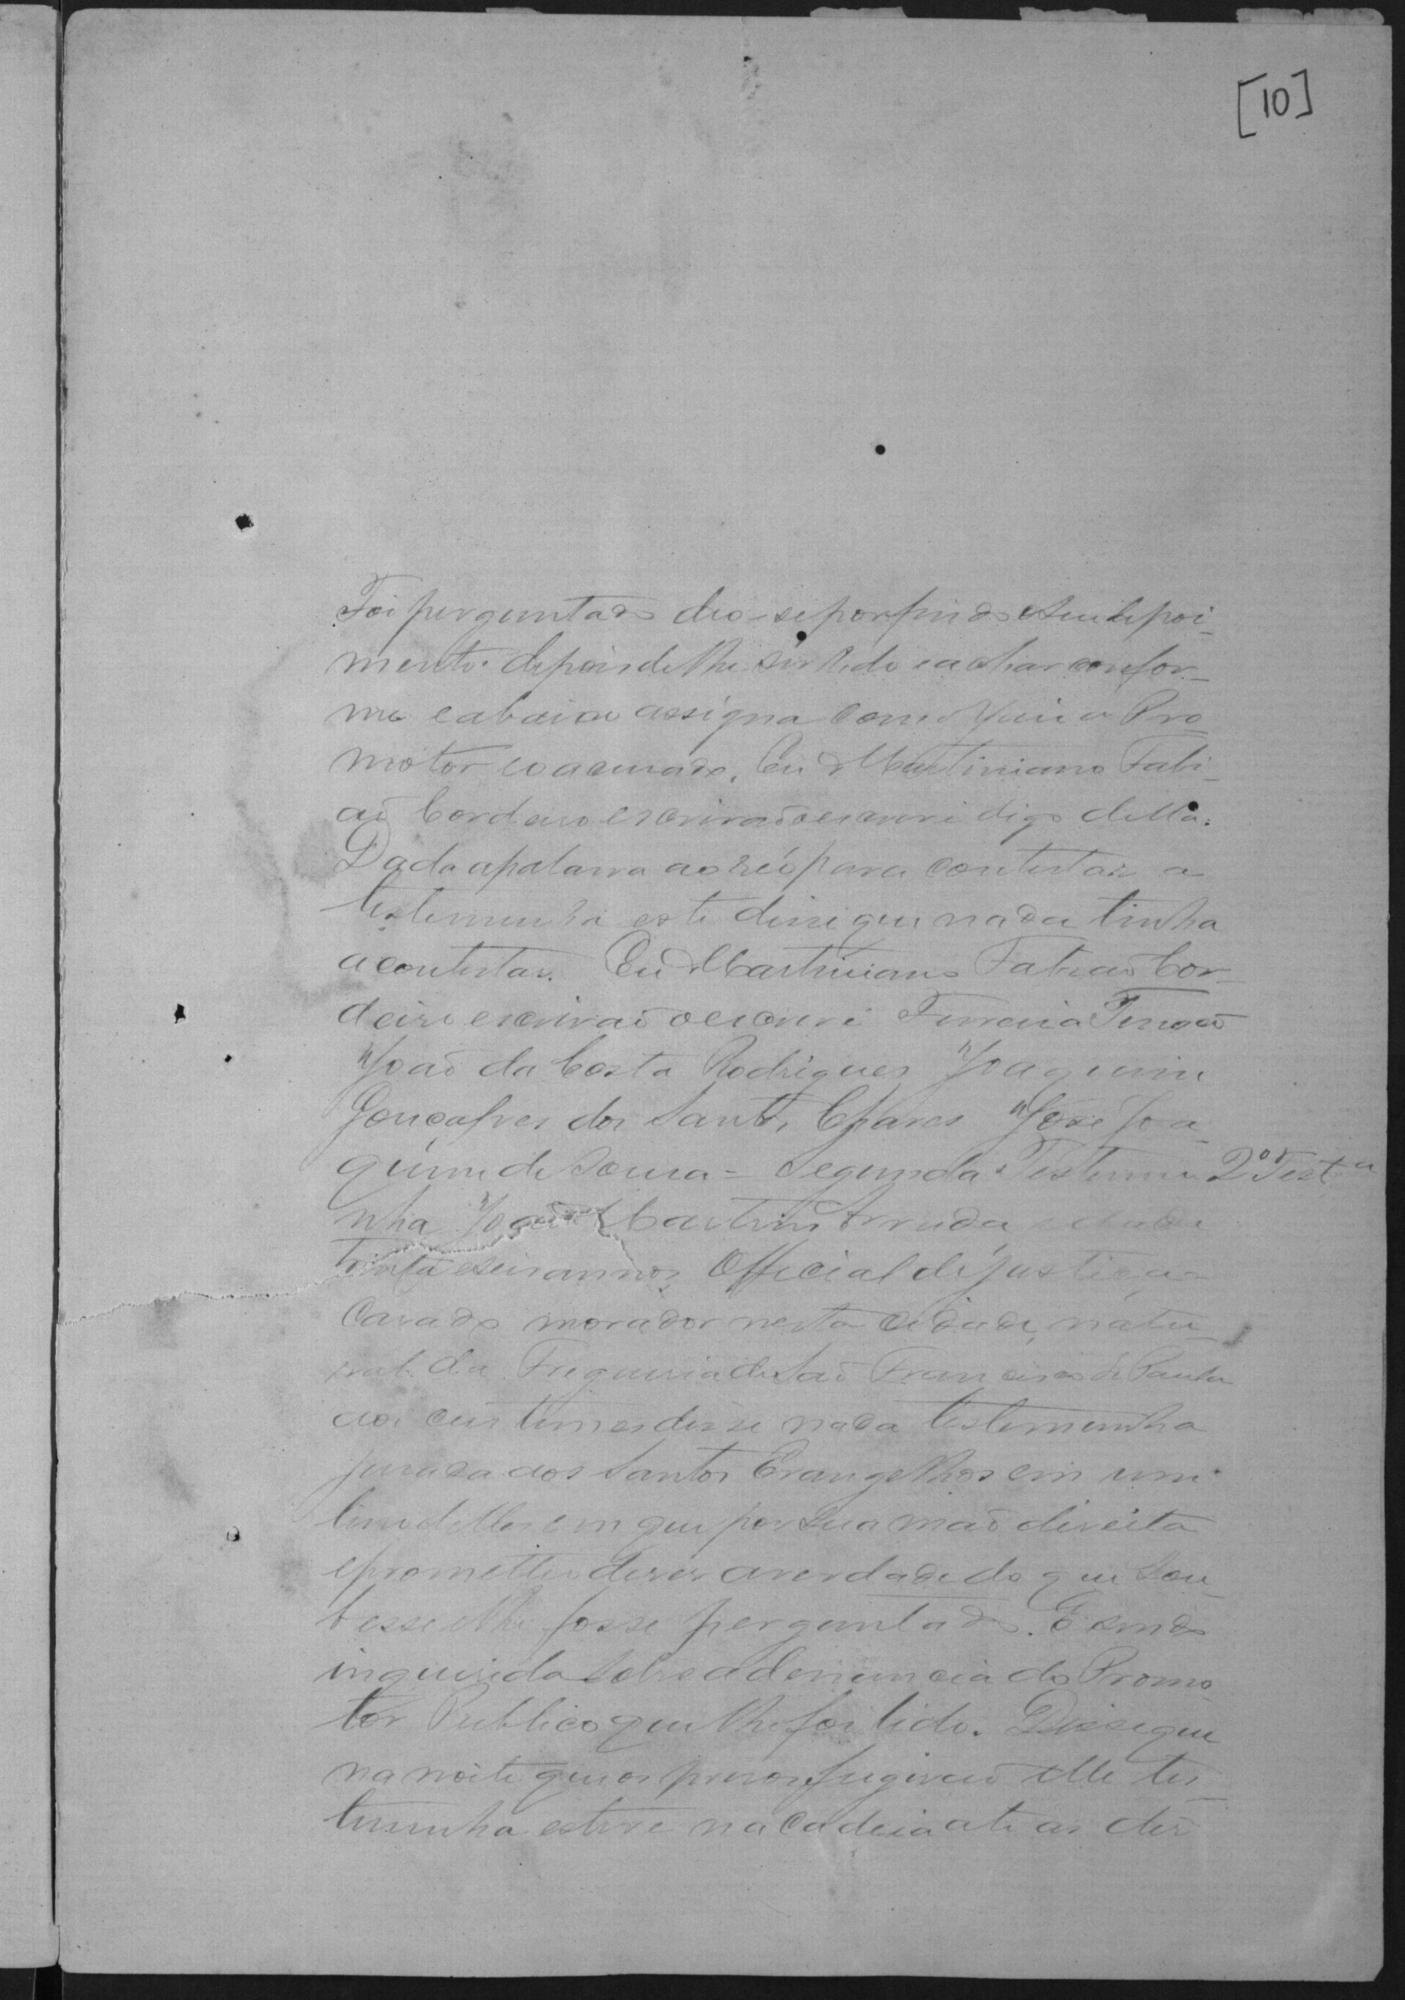 [10]
Foi perguntado deo-se por findo seu depoi-
mento depois de lhe ser lido e achar confor-
me e abaixo assigna com o Juiz o Pro
motor e o acusado. Eu Martiniano Fabi-
aõ Cordeiro escrivaõ escrevi digo della.
Dada a palavra ao réo para contestar a
testemunha este disse que nada tinha
a contestar. Eu Martiniano Fabiaõ Cor-
deiro escrivaõ o escrevi Ferreira
Joaõ da Costa Rodrigues Joaquim
Gonçalves dos Santos Chaves José Joa-
quim de Sousa = Segunda Testemu-
2ª Testa
nha Joaõ Martins Arruda, idade
trinta e seis annos, Official de justiça
casado morador nesta cidade, natu
ral da Freguesia de Saõ Francisco de Paula
aos custumes disse nada testemunha
jurada aos Santos Evangelhos em um
livro delles em que por sua maõ direita
e prometteo diser a verdade do que sou-
besse e lhe fosse perguntado. E sendo
inquirida sobre a denuncia do Promo-
tor Publico que lhe foi lido. Disse que
na noite que os presos fugiraõ elle tes-
temunha esteve na cadeia ate as des